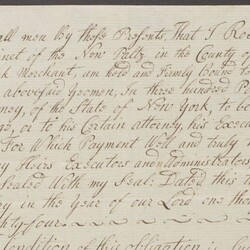 all men by these Presents, That I Roe
inet of the New Paltz in the County of
Merchant, am held and Firmly bound
abovesaid yeomen, In three hundred Po
ney, of the State of New York, to be
or to his Certain attorney, his Execu
For Which Payment Well and truly
my Heirs Executors and administrators
Sealed With my Seal: Dated this
ry in the year of our Lord one thou
hty four.
Condition of this obligation is